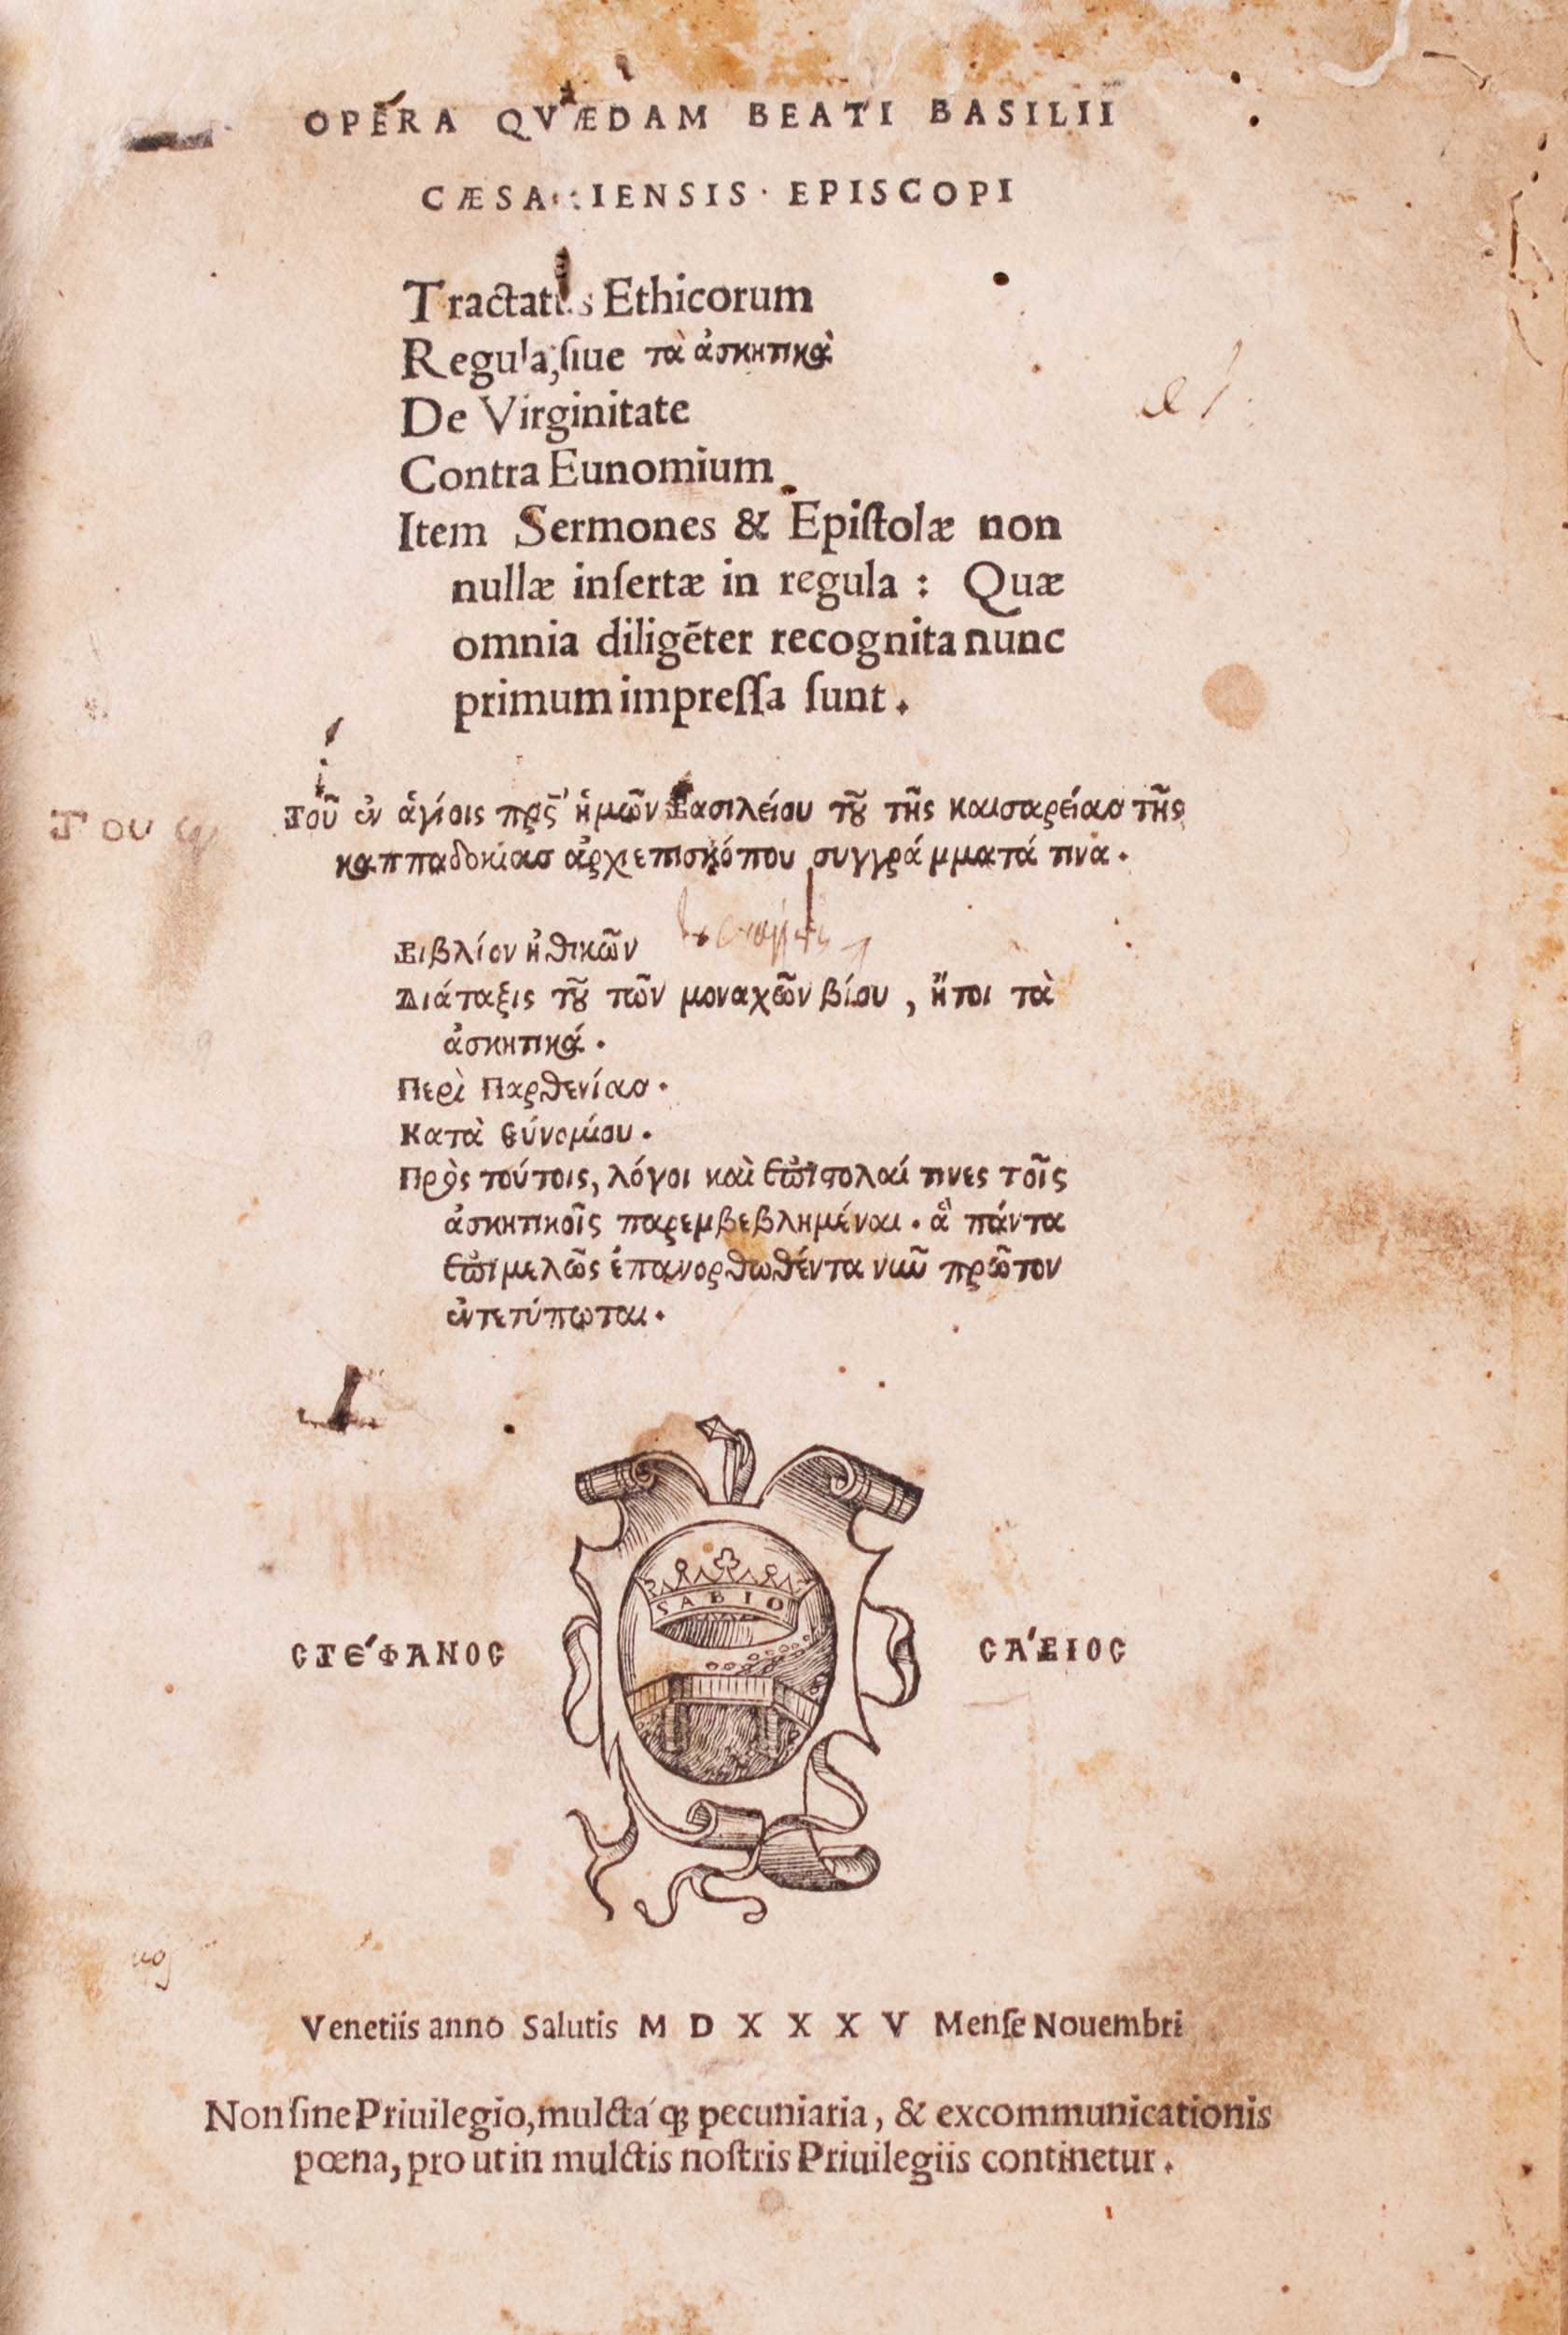 OPERA QVÆDAM BEATI BASILII
CÆSARIENSIS · EPISCOPI
Tractatus Ethicorum
Regula, siue τὰ ἀσκητικὰ
De Virginitate
Contra Eunomium
Item Sermones & Epistolæ non
nullæ insertæ in regula : Quæ
omnia diligēter recognita nunc
primum impressa sunt.
Τοῦ ἐν ἁγίοις πρς̄ ἡμῶν Βασιλείου τοῦ τῆς καισαρείασ τῆς
καππαδοκίασ ἀρχιεπισκόπου συγγράμματά τινα.
Βιβλίον ἠθικῶν
Διάταξις τοῦ τῶν μοναχῶν βίου , ἤτοι τὰ
ἀσκητικά.
Περὶ Παρθενίασ.
Κατὰ Εὐνομίου.
Πρὸς τούτοις, λόγοι καὶ ἐπιστολαί τινες τοῖς
ἀσκητικοῖς παρεμβεβλημέναι. ἃ πάντα
ἐπιμελῶς ἐπανορθωθέντα νῦν πρῶτον
ἐντετύπωται.
SABIO
ϹΤΕ´ΦΑΝΟϹ ϹΑ´ΒΙΟϹ
Venetiis anno Salutis M D X X X V Mense Nouembri
Non sine Priuilegio, mulctaq; pecuniaria, & excommunicationis
pœna, pro ut in mulctis nostris Priuilegiis continetur.